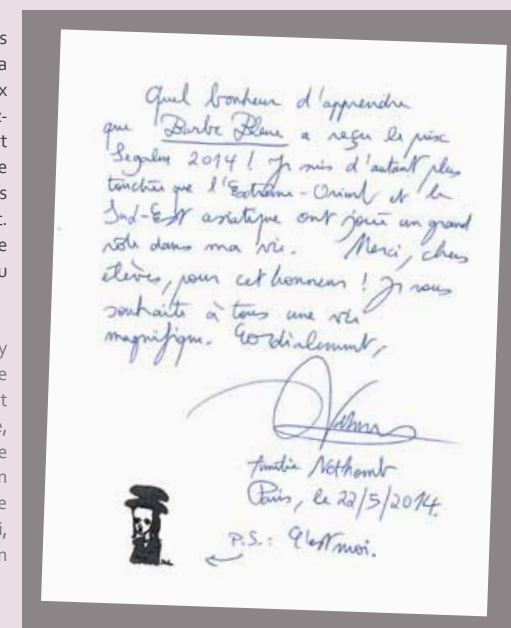 s
a
x
-
t
e
s
t.
e
u
y
e
t
e,
e
n
e
i,
n
Quel bonheur d'apprendre
que Barbe Bleue a reçu le prix
Segalen 2014 ! Je suis d'autant plus
touchée que l'Extrême-Orient et le
Sud-Est asiatique ont joué un grand
rôle dans ma vie. Merci, chers
élèves, pour cet honneur ! Je vous
souhaite à tous une vie
magnifique. Cordialement,
Amélie Nothomb
Paris, le 22/5/2014.
P.S. : C'est moi.